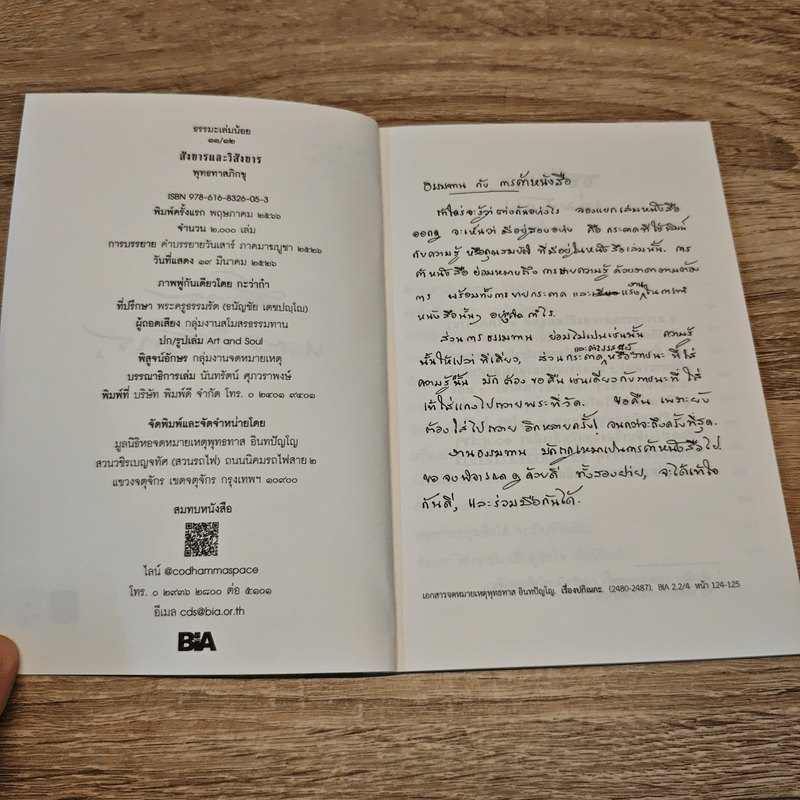 ธรรมะเล่มน้อย
๑๑/๑๒
สังขารและวิสังขาร
พุทธทาสภิกขุ
ISBN 978-616-8326-05-3
พิมพ์ครั้งแรก พฤษภาคม ๒๕๖๖
จำนวน ๒,๐๐๐ เล่ม
การบรรยาย คำบรรยายวันเสาร์ ภาคมาฆบูชา ๒๕๒๖
วันที่แสดง ๑๙ มีนาคม ๒๕๒๖
ภาพพู่กันเดียวโดย กะว่าก๋า
ที่ปรึกษา พระครูธรรมรัต (ธนัญชัย เตชปญฺโญ)
ผู้ถอดเสียง กลุ่มงานสโมสรธรรมทาน
ปก/รูปเล่ม Art and Soul
พิสูจน์อักษร กลุ่มงานจดหมายเหตุ
บรรณาธิการเล่ม นันทรัตน์ ศุภวราพงษ์
พิมพ์ที่ บริษัท พิมพ์ดี จำกัด โทร. ๐ ๒๔๐๑ ๙๔๐๑
จัดพิมพ์และจัดจำหน่ายโดย
มูลนิธิหอจดหมายเหตุพุทธทาส อินทปัญโญ
สวนวชิรเบญจทัศ (สวนรถไฟ) ถนนนิคมรถไฟสาย ๒
แขวงจตุจักร เขตจตุจักร กรุงเทพฯ ๑๐๙๐๐
สมทบหนังสือ
ไลน์ @codhammaspace
โทร. ๐ ๒๙๓๖ ๒๘๐๐ ต่อ ๕๑๐๑
อีเมล cds@bia.or.th
BIA
ธรรมทาน กับ การค้าหนังสือ
ถ้าใครจะรู้ว่า ต่างกันอย่างไร ลองแยกเล่มหนังสือ
ออกดู จะเห็นว่า มีอยู่สองอย่าง คือ กระดาษที่ใช้พิมพ์
กับความรู้ หรือคุณสมบัติ ที่มีอยู่ในหนังสือเล่มนั้น. การ
ค้าหนังสือ ย่อมหมายถึง การขายความรู้ ด้วยราคาตามต้อง
การ พร้อมทั้งการขายกระดาษ และแรงงานในการทำ
หนังสือนั้นๆ อย่างคิดกำไร.
ส่วนการธรรมทาน ย่อมไม่เป็นเช่นนั้น ความรู้
นั้นให้เปล่า ทีเดียว, ส่วนกระดาษ และค่าแรง หรือภาชนะ ที่ใส่
ความรู้นั้น มักต้อง ขอคืน เช่นเดียวกับภาชนะที่ใส่
เท้าใส่แกงไปถวายพระที่วัด. ขอคืน เพราะยัง
ต้องใส่ไปถวาย อีกหลายครั้ง จนกว่าจะถึงครั้งที่สุด.
งานธรรมทาน มักถูกเหมาเป็นการค้าหนังสือไป.
ขอ จงพิจารณาดูด้วยดี ทั้งสองฝ่าย, จะได้เข้าใจ
กันดี, และร่วมมือกันได้.
เอกสารจดหมายเหตุพุทธทาส อินทปัญโญ. เรื่องปกิณกะ. (2480-2487). BIA 2.2/4 หน้า 124-125